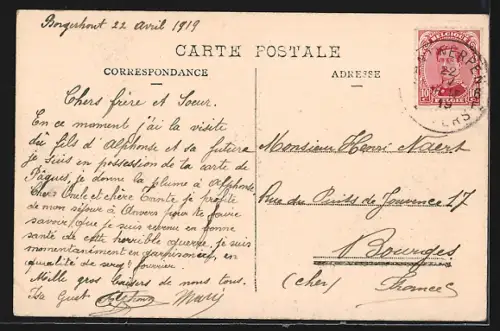 Borgerhout 22 avril 1919
CARTE POSTALE
CORRESPONDANCE
ADRESSE
BELGIQUE
10
10
BELGIE
ANTWERPEN 6
22
19
ANVERS
Chers frère et Soeur.
En ce moment j'ai la visite
du fils d'Alphonse et sa future
je suis en possession de la carte de
Pâques, je donne la plume à Alphonse
Chers Oncle et chère Tante je profite
de mon séjour à Anvers pour te faire
savoir que je suis revenu en bonne
santé de cette horrible guerre, je suis
momentanément en garnison en
qualité de serg. fourrier
Mille gros baisers de nous tous.
Alphonse Marie
Monsieur Henri Naert
Rue du Puits de Jouvence 17
Bourges
(Cher) France